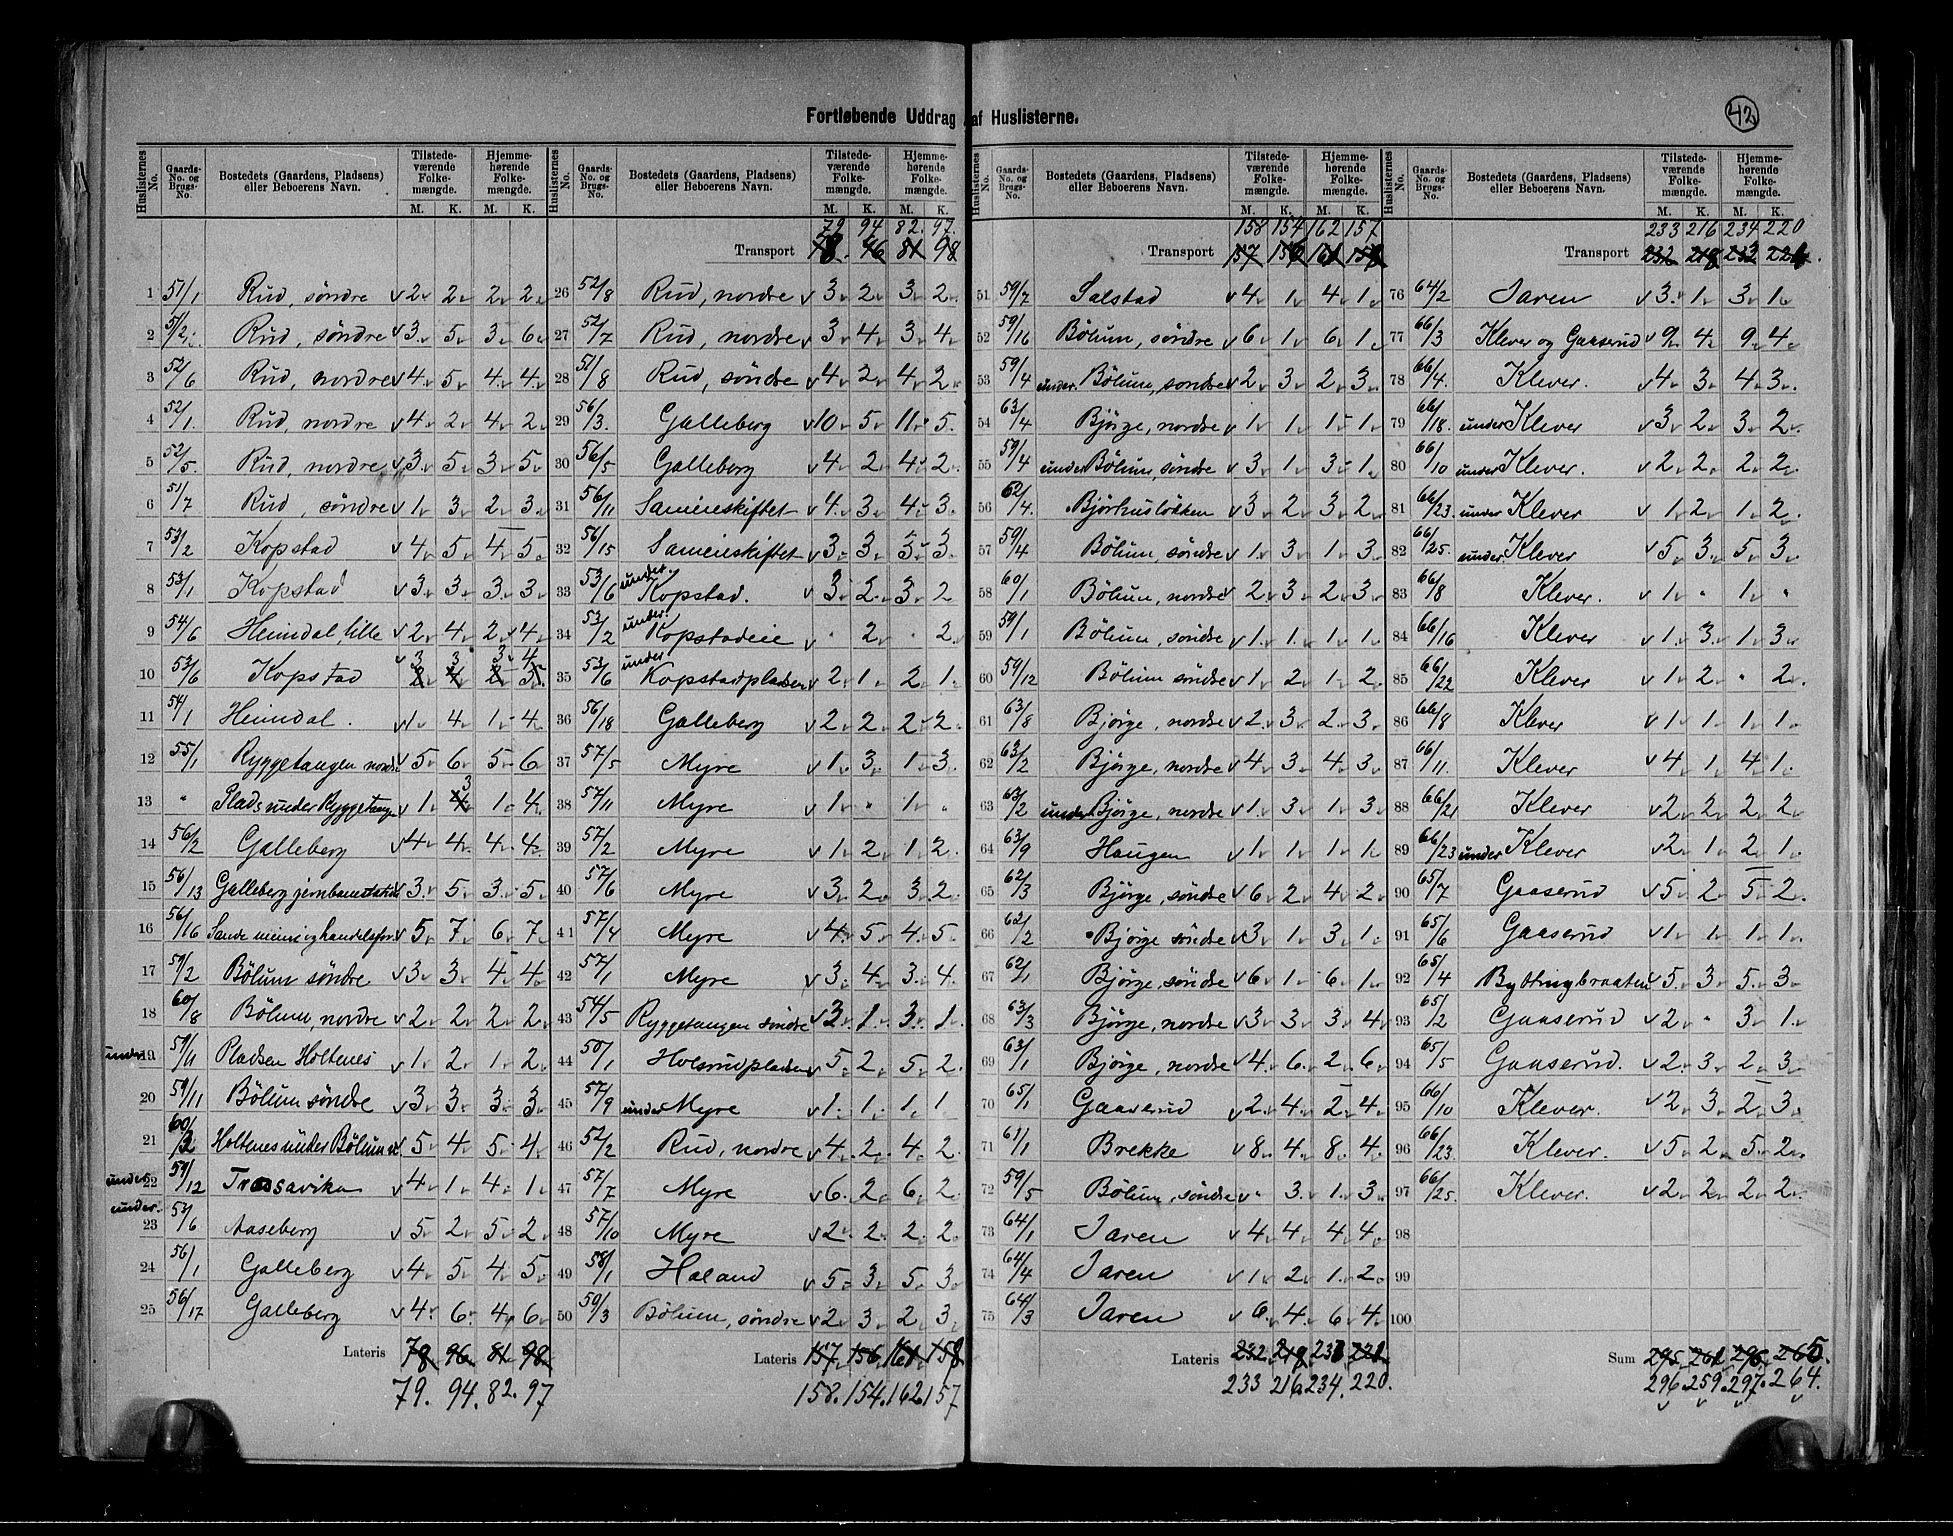 Fortløbende Uddrag af Huslisterne.
42
Huslisternes No. Gaards-No. og Brugs-No. Bostedets (Gaardens, Pladsens) eller Beboerens Navn. Tilstedeværende Folkemængde. M. K. Hjemmehørende Folkemængde. M. K.
1 51/1 Rud, søndre 2 2 2 2
2 51/2 Rud, søndre 3 5 3 6
3 52/6 Rud, nordre 4 5 4 4
4 52/1 Rud, nordre 4 2 4 2
5 52/5 Rud, nordre 3 5 3 5
6 51/7 Rud, søndre 1 3 2 3
7 53/2 Kopstad 4 5 4 5
8 53/1 Kopstad 3 3 3 3
9 54/6 Heimdal lille 2 4 2 4
10 53/6 Kopstad 3 3 3 4
11 54/1 Heimdal. 1 4 1 4
12 55/1 Ryggetangen nordre 5 6 5 6
13 " Plads under Ryggetangen 1 3 1 4
14 56/2 Galleberg 4 4 4 4
15 56/13 Galleberg jernbanestation 3 5 3 5
16 56/16 Sande meieri og handelsfor 5 7 6 7
17 59/2 Bölum søndre 3 3 4 4
18 60/8 Bölum, nordre 2 2 2 2
19 under 59/11 Pladsen Holtenes 1 2 1 2
20 59/11 Bölum søndre 3 3 3 3
21 60/3 Holtenes under Bölum n 5 4 5 4
22 under 59/12 Trosavika 4 1 4 1
23 under 53/6 Aaseberg 5 2 5 2
24 56/1 Galleberg 4 5 4 5
25 56/17 Galleberg 4 6 4 6
Lateris 78 96 81 98
79. 94. 82. 97
79 94 82. 97.
Transport 78. 96 81 98
26 52/8 Rud, nordre 3 2 3 2
27 52/7 Rud, nordre 3 4 3 4
28 51/8 Rud, søndre 4 2 4 2
29 56/3 Galleberg 10 5 11 5
30 56/5 Galleberg 4 2 4 2
31 56/11 Sameieskiftet 4 3 4 3
32 56/15 Sameieskiftet 3 3 3 3
33 53/6 under Kopstad. 3 2 3 2
34 53/2 under Kopstadeie " 2 " 2
35 53/6 under Kopstadpladsen 2 1 2 1
36 56/18 Galleberg 2 2 2 2
37 57/5 Myre 1 3 1 3
38 57/11 Myre 1 " 1 "
39 57/2 Myre 1 2 1 2
40 57/6 Myre 3 2 3 2
41 57/4 Myre 4 5 4 5
42 57/1 Myre 3 4 3 4
43 54/5 Ryggetangen søndre 3 1 3 1
44 50/1 Holsrudpladsen 5 2 5 2
45 57/9 under Myre 1 1 1 1
46 52/2 Rud, nordre 4 2 4 2
47 57/7 Myre 6 2 6 2
48 57/10 Myre 2 2 2 2
49 58/1 Haland 5 3 5 3
50 59/3 Bölum, søndre 2 3 2 3
Lateris 157 156 161 158
158. 154. 162. 157
158 154 162 157
Transport 157 156 161 158
51 59/7 Salstad 4 1 4 1
52 59/16 Bölum, søndre 6 1 6 1
53 59/4 under Bölum, søndre 2 3 2 3
54 63/4 Bjørge, nordre 1 1 1 1
55 59/4 under Bölum, søndre 3 1 3 1
56 62/4 Bjørhusløkken 3 2 3 2
57 59/4 Bölum, søndre 1 3 1 3
58 60/1 Bölum, nordre 2 3 2 3
59 59/1 Bölum, søndre 1 1 1 1
60 59/12 Bölum søndre 1 2 1 2
61 63/8 Bjørge, nordre 2 3 2 3
62 63/2 Bjørge, nordre 4 3 4 3
63 63/2 under Bjørge, nordre 1 3 1 3
64 63/9 Haugen 1 1 1 1
65 62/3 Bjørge, søndre 6 2 4 2
66 62/2 Bjørge søndre 3 1 3 1
67 62/1 Bjørge, søndre 6 1 6 1
68 63/3 Bjørge, nordre 3 3 3 4
69 63/1 Bjørge, nordre 4 6 2 6
70 65/1 Gaaserud 2 4 2 4
71 61/1 Brekke 8 4 8 4
72 59/5 Bölum, søndre " 3 1 3
73 64/1 Jaren 4 4 4 4
74 64/4 Jaren 1 2 1 2
75 64/3 Jaren 6 4 6 4
Lateris 232 218 233 221
233 216. 234. 220.
233 216 234 220
Transport 232 218 233 221
76 64/2 Jaren 3 1 3 1
77 66/3 Klever og Gaaserud 9 4 9 4
78 66/4 Klever. 4 3 4 3
79 66/18 under Klever 3 2 3 2
80 66/10 under Klever. 2 2 2 2
81 66/23 under Klever 1 2 1 2
82 66/25 under Klever 5 3 5 3
83 66/8 Klever. 1 " 1 "
84 66/16 Klever 1 3 1 3
85 66/22 Klever 1 2 " 2
86 66/8 Klever 1 1 1 1
87 66/11 Klever 4 1 4 1
88 66/21 Klever 2 2 2 2
89 66/23 under Klever 2 1 2 1
90 65/7 Gaaserud 5 2 5 2
91 65/6 Gaaserud 1 1 1 1
92 65/4 Byttingbraaten 5 3 5 3
93 65/2 Gaaserud 2 " 3 1
94 65/5 Gaaserud. 2 3 2 3
95 66/10 Klever. 2 3 2 3
96 66/23 Klever. 5 2 5 2
97 66/25 Klever. 2 2 2 2
98
99
100
Sum 295 261 296 265
296. 259. 297. 264.